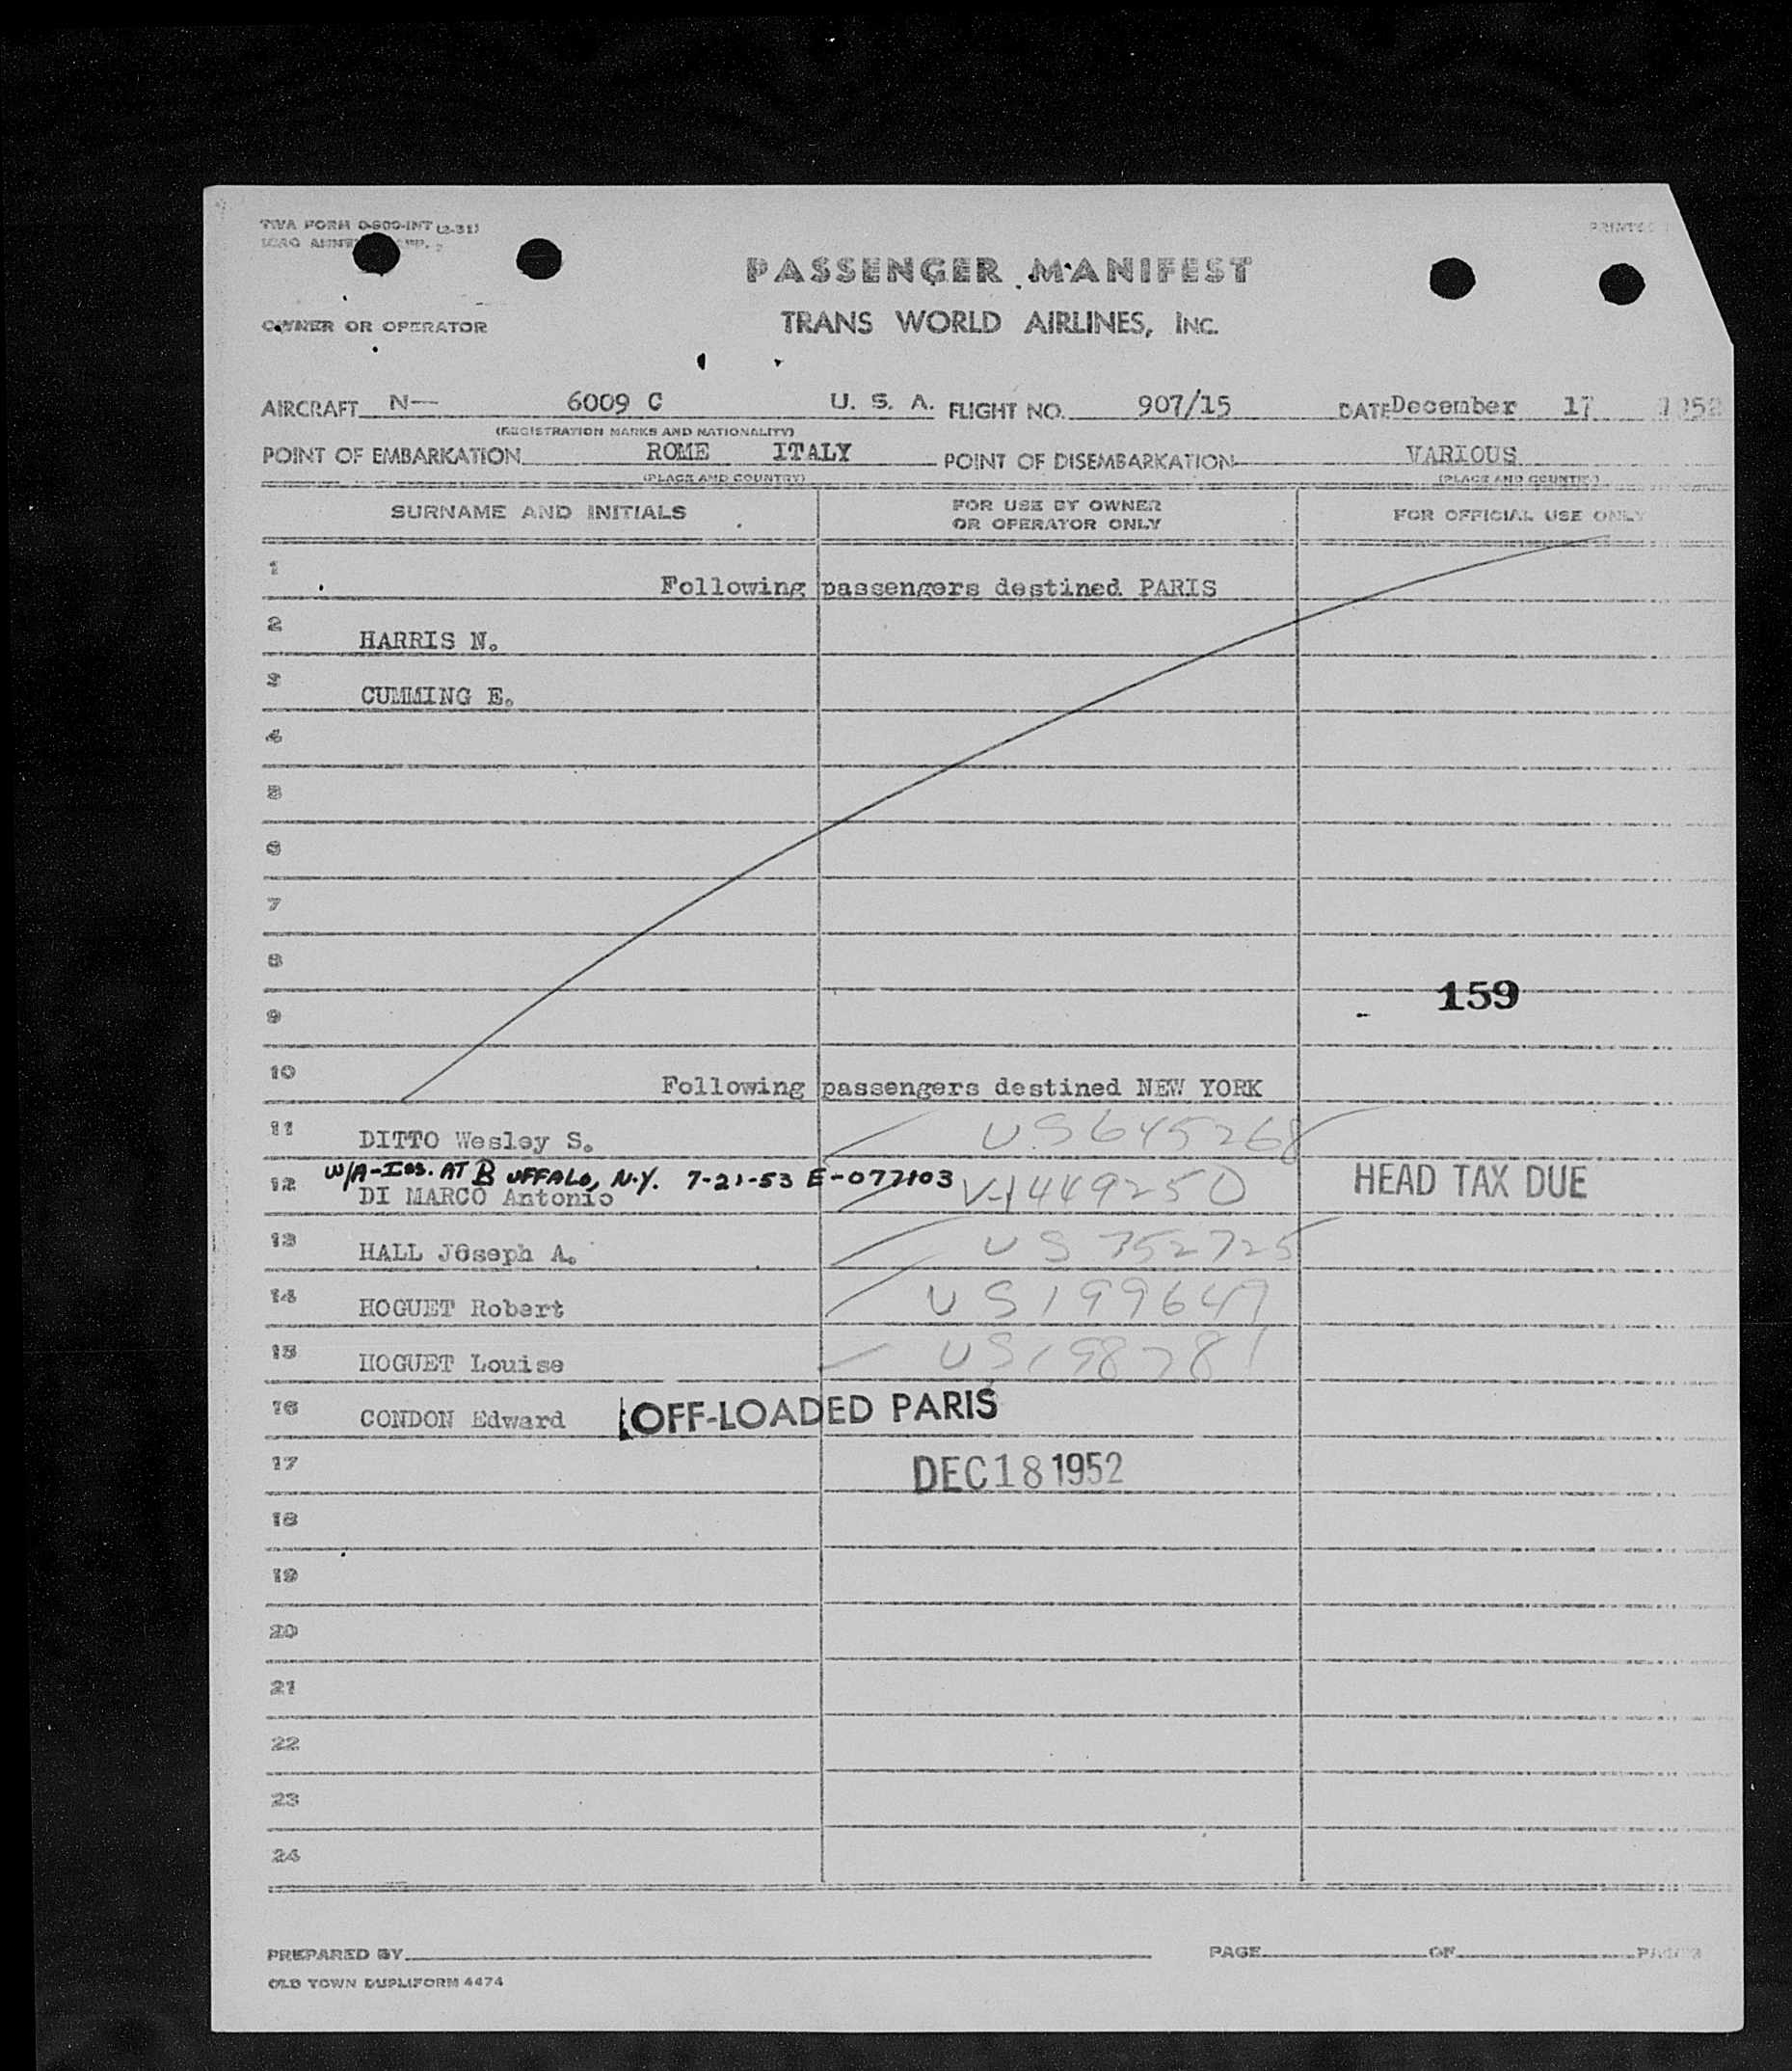 TWA FORM 0-800-INT (2-51)
ICAO ANNEX
PASSENGER MANIFEST
OWNER OR OPERATOR TRANS WORLD AIRLINES, INC.
AIRCRAFT N— 6009 C U. S. A. FLIGHT NO. 907/15 DATE December 17 1952
(REGISTRATION MARKS AND NATIONALITY)
POINT OF EMBARKATION ROME ITALY POINT OF DISEMBARKATION VARIOUS
(PLACE AND COUNTRY) (PLACE AND COUNTRY)
SURNAME AND INITIALS FOR USE BY OWNER OR OPERATOR ONLY FOR OFFICIAL USE ONLY
1 Following passengers destined PARIS
2 HARRIS N.
3 CUMMING E.
4
5
6
7
8
159
9
10 Following passengers destined NEW YORK
11 DITTO Wesley S. US645268
W/A-Ins. AT BUFFALO, N.Y. 7-21-53 E-077103
12 DI MARCO Antonio V-1449250 HEAD TAX DUE
13 HALL Joseph A. US 752725
14 HOGUET Robert US199647
15 HOGUET Louise US198781
16 CONDON Edward OFF-LOADED PARIS
17 DEC 18 1952
18
19
20
21
22
23
24
PREPARED BY PAGE OF PAGES
OLD TOWN DUPLIFORM 4474